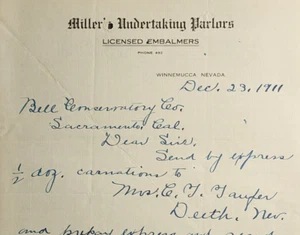 Miller's Undertaking Parlors
LICENSED EMBALMERS
PHONE
WINNEMUCCA, NEVADA
Dec. 23, 1911
Bell Conservatory Co.
Sacramento, Cal.
Dear Sirs.
Send by express
1/2 doz. carnations to
Mrs. C. T.
Deeth, Nev.
and prepay express and send